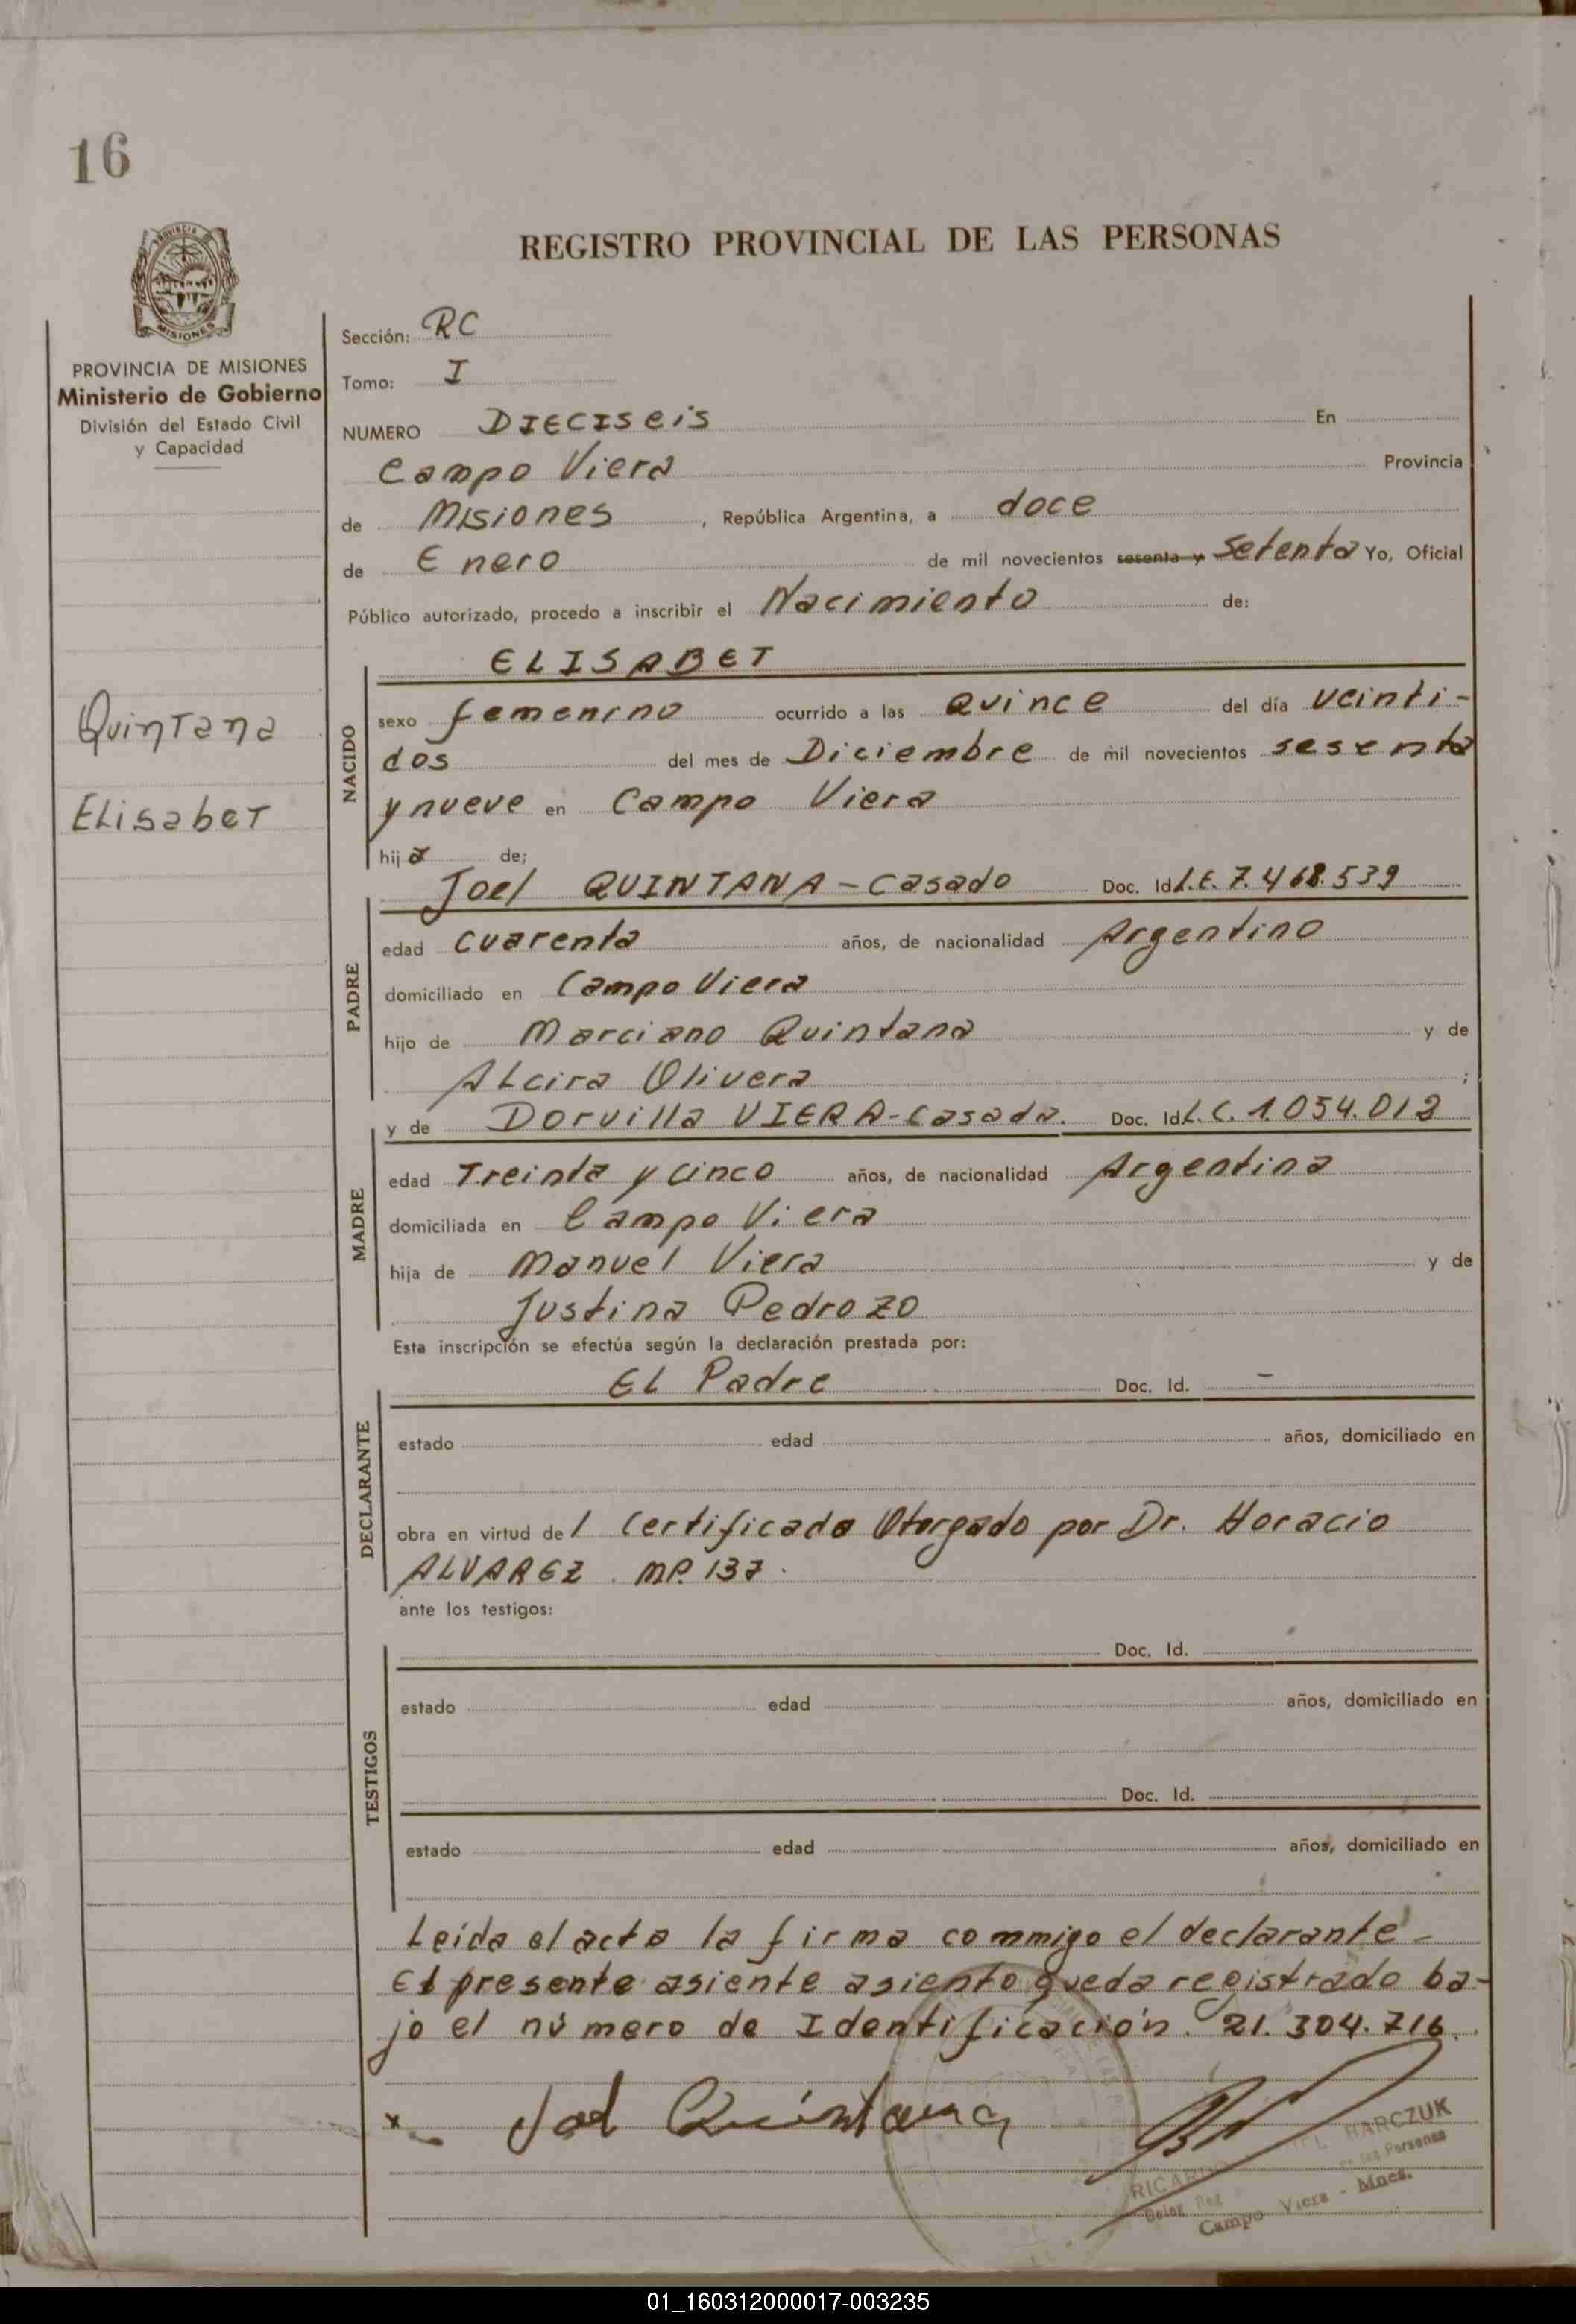 16
REGISTRO PROVINCIAL DE LAS PERSONAS
PROVINCIA DE MISIONES
Ministerio de Gobierno
División del Estado Civil
y Capacidad
Quintana
Elisabet
Sección: RC
Tomo: I
NUMERO DIECISeis En
Campo Viera Provincia
de Misiones, República Argentina, a doce
de Enero de mil novecientos sesenta y Setenta Yo, Oficial
Público autorizado, procedo a inscribir el Nacimiento de:
NACIDO
ELISABET
sexo femenino ocurrido a las quince del día veinti-
dos del mes de Diciembre de mil novecientos sesenta
y nueve en Campo Viera
hija de;
PADRE
Joel QUINTANA - Casado Doc. Id L.E. 7.468.539
edad cuarenta años, de nacionalidad Argentino
domiciliado en Campo Viera
hijo de Marciano Quintana y de
Alcira Olivera ;
MADRE
y de Dorvilla VIERA - Casada. Doc. Id L.C. 1.054.012
edad Treinta y cinco años, de nacionalidad Argentina
domiciliada en Campo Viera
hija de Manuel Viera y de
Justina Pedrozo
Esta inscripción se efectúa según la declaración prestada por:
DECLARANTE
El Padre Doc. Id. -
estado edad años, domiciliado en
obra en virtud del Certificado Otorgado por Dr. Horacio
ALVAREZ. MP. 137.
ante los testigos:
TESTIGOS
Doc. Id.
estado edad años, domiciliado en
Doc. Id.
estado edad años, domiciliado en
Leída el acta la firma commigo el declarante-
El presente asiente asiento queda registrado ba-
jo el número de Identificación 21.304.716.
x Joel Quintana
RICARDO HARCZUK
de las Personas
Campo Viera - Mnes.
01_160312000017-003235